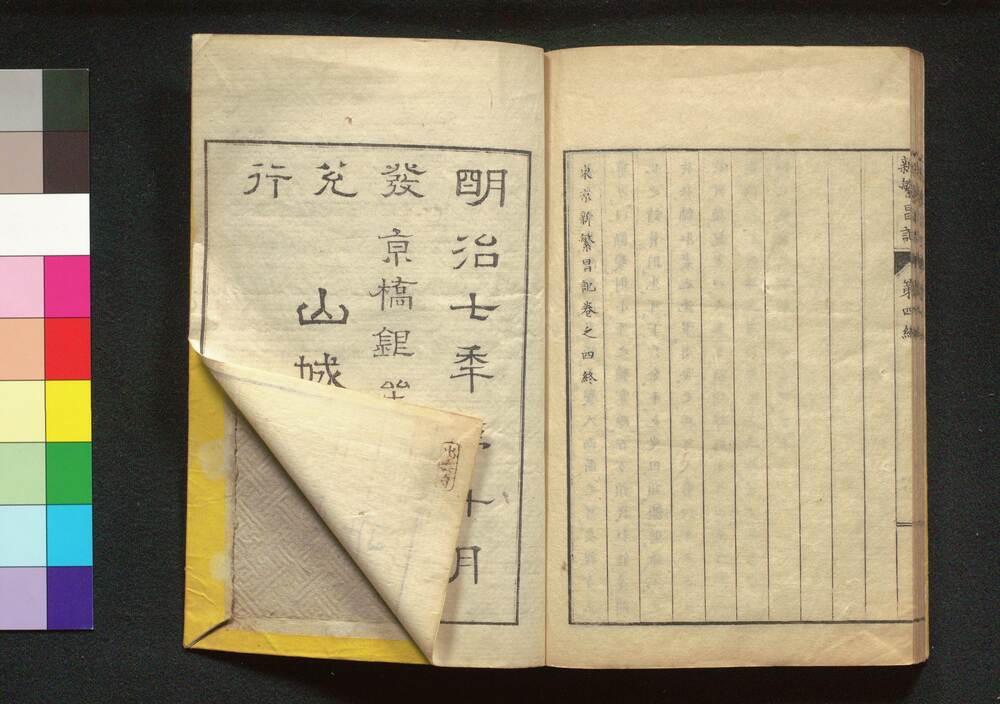 新繁昌記
第四編
東京新繁昌記巻之四終
明治七季
十月
發
京橋銀
兌
山城
行